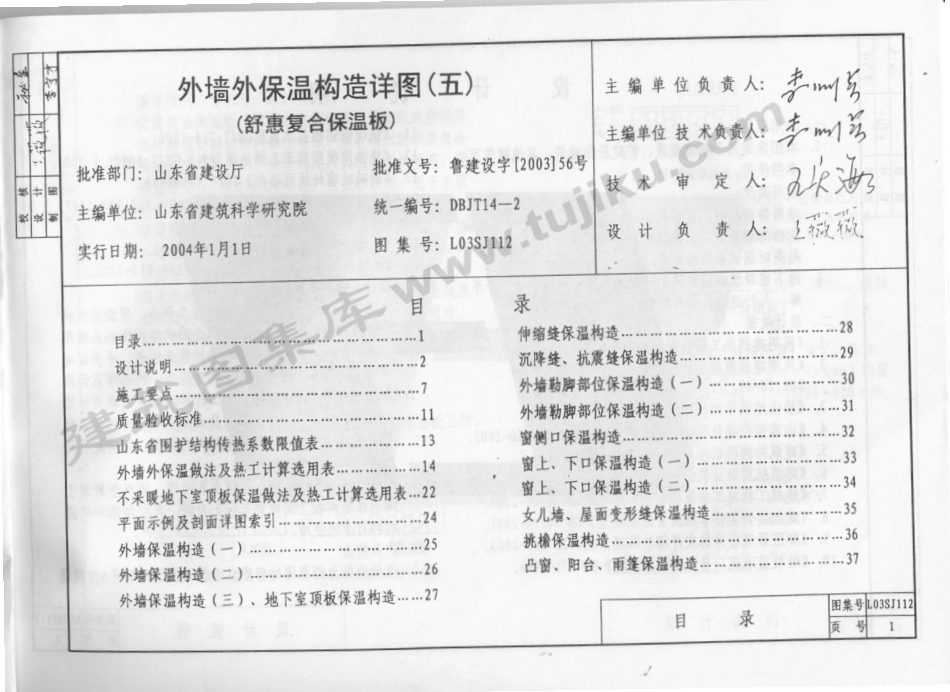 外墙外保温构造详图(五)
(舒惠复合保温板)
批准部门: 山东省建设厅
批准文号: 鲁建设字[2003]56号
主编单位: 山东省建筑科学研究院
统一编号: DBJT14—2
实行日期: 2004年1月1日
图集号: L03SJ112
主编单位负责人:
主编单位技术负责人:
技术审定人:
设计负责人: 王薇薇
校核
设计
制图
目录
目录……1
设计说明……2
施工要点……7
质量验收标准……11
山东省围护结构传热系数限值表……13
外墙外保温做法及热工计算选用表……14
不采暖地下室顶板保温做法及热工计算选用表…22
平面示例及剖面详图索引……24
外墙保温构造(一)……25
外墙保温构造(二)……26
外墙保温构造(三)、地下室顶板保温构造……27
伸缩缝保温构造……28
沉降缝、抗震缝保温构造……29
外墙勒脚部位保温构造(一)……30
外墙勒脚部位保温构造(二)……31
窗侧口保温构造……32
窗上、下口保温构造(一)……33
窗上、下口保温构造(二)……34
女儿墙、屋面变形缝保温构造……35
挑檐保温构造……36
凸窗、阳台、雨篷保温构造……37
目录
图集号 L03SJ112
页号 1
建筑图集库 www.tujiku.com